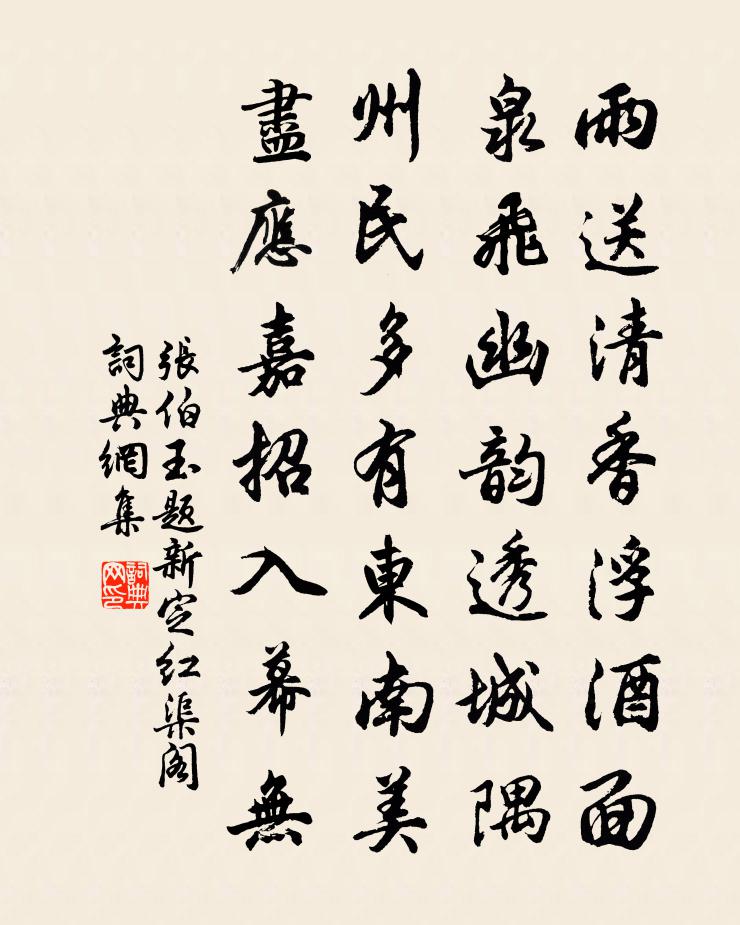 雨送清香浮酒面
泉飛幽韵透城隅
州民多有東南美
盡應嘉招入幕無
張伯玉題新定紅渠阁
詞典網集
詞典网印